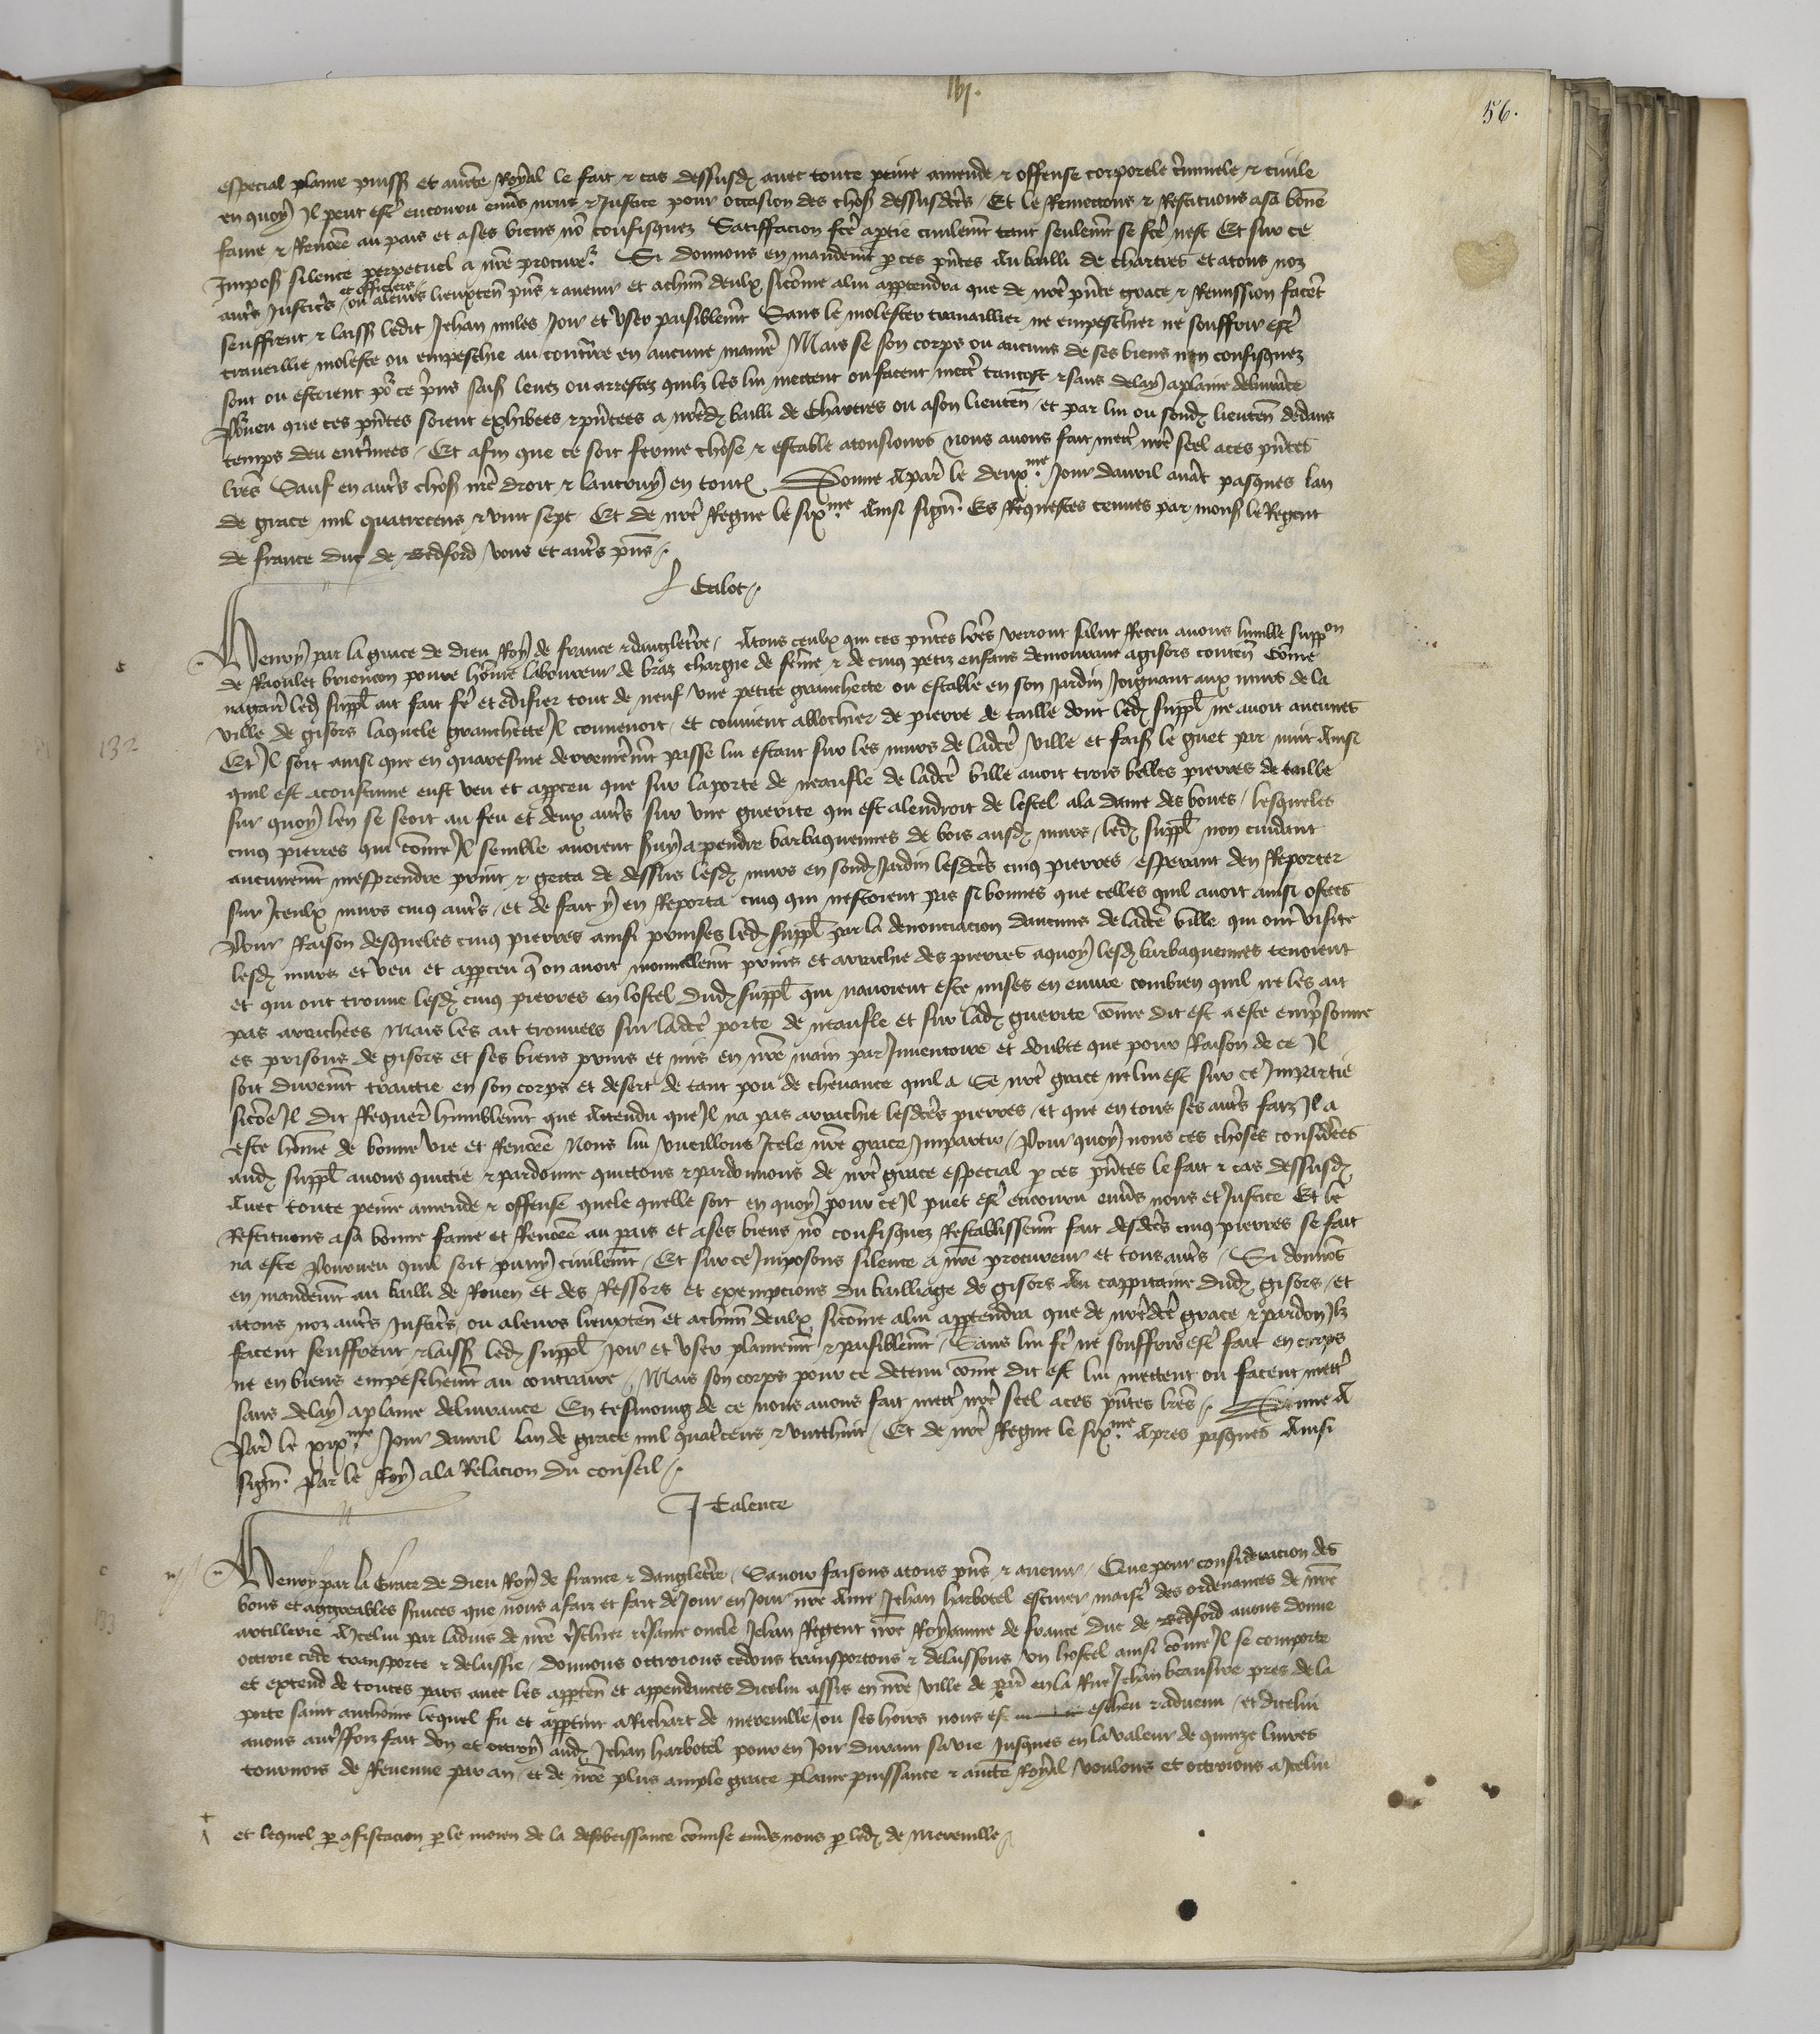 lvj.
56.
especial plaine puissance et aucte Royal le fait & cas dessusd avec toute peine amende & offense corporele criminele & civile
en quoy Il peut estre encouru envers nous & Justice pour occasion des choses dessusdctes / Et le Remectons & Restituons a sa bonne
fame & Renomee au pais et a ses biens non confisquez Satiffacion fcte a partie civilement tant seulement se fcte nest Et sur ce
Imposons silence perpetuel a nre procureur Si donnons en mandement par ces pntes Au bailli de chartres et a tous noz
autres Justiciers et officiers ou a leurs lieuxtenans pns & avenir et a chun deulx si come a lui appartendra que de nre pnte grace & Remission facent
seuffrent & laissent ledit Jehan miles Joir et user paisiblement Sans le molester travaillier ne empeschier ne souffrir estre
travaillie moleste ou empeschie au contraire en aucune maniere Mais se son corps ou aucuns de ses biens non confisquez
sont ou estoient pour ce prins saisiz levez ou arrestez quilz les lui mettent ou facent mettre tantost & sans delay a plaine delivrance
Pourveu que ces pntes soient exhibees & pntees a nredit bailli de Chartres ou a son lieuten / et par lui ou sond lieuten dedans
temps deu enterinees / Et afin que ce soit ferme chose & estable a tousjours Nous avons fait mettre nre seel a ces pntes
lres Sauf en autres choses nre droit & lautruy en toutes Donne A paris le deuxme Jour davril avant pasques lan
de grace mil quatrecens & vint sept Et de nre Regne le sixme Ainsi signe Es Requestes tenues par mons le Regent
de france duc de Bedford vous et autres pns /.
J Calot /.
Henry par la grace de dieu Roy de france & dangleterre / A tous ceulx qui ces pntes lres verront salut Receu avons lumble suppon
de Raoulet briencon povre home laboureur de braz chargie de feme & de cinq petiz enfans demourant a gisors conten Come
nagaires led suppl ait fait fe et edifier tout de neuf une petite granchecte ou estable en son Jardin Joignant aux murs de la
ville de gisors laquele granchecte Il convenoit et convient allochier de pierre de taille dont led suppl ne avoit aucunes
Et Il soit ainsi que en quaresme derrenierement passe lui estant sur les murs de ladcte ville et faisant le guet par nuit Ainsi
quil est acoustume eust veu et apperceu que sur la porte de neaufle de ladcte ville avoit trois belles pierres de taille
sur quoy len se seoit au feu et deux autres sur une guerite qui est a lendroit de lostel a la dame des boves / lesqueles
cinq pierres qui come Il semble avoient servy a pendre barbaquennes de bois ausd murs / led suppl non cuidant
aucunement mesprendre print & getta de dessus lesd murs en sond Jardin lesdctes cinq pierres / esperant den Reporter
sur Iceulx murs cinq autres / et de fait y en Reporta cinq qui nestoient pas si bonnes que celles quil avoit ainsi ostees
Pour Raison desqueles cinq pierres ainsi prinses led suppl par la denonciacion daucuns de ladcte ville qui ont visite
lesd murs et veu et apperceu que on avoit nouvellement prins et arrachie des pierres a quoy lesd barbaquennes tenoient
et qui ont trouve lesd cinq pierres en lostel dud suppl qui navoient este mises en euvre combien quil ne les ait
pas arrachees Mais les ait trouvees sur ladcte porte de neaufle et sur lad guerite come dit est a este emprisonne
es prisons de gisors et ses biens prins et mis en nre main par Inventoire et doubte que pour Raison de ce Il
soit durement traictie en son corps et desert de tant pou de chevance quil a Se nre grace ne lui est sur ce Impartie
sicome Il dit Requerant humblement que Attendu que Il na pas arrachie lesdctes pierres / et que en tous ses autres faiz Il a
este home de bonne vie et Renomee Nous lui vueillons Icele nre grace Impartir / Pour quoy nous ces choses considerees
aud suppl avons quictie & pardonne quictons & pardonnons de nre grace especial par ces pntes le fait & cas dessusd
Avec toute peine amende & offense quele quelle soit en quoy pour ce Il puet estre encouru envers nous et Justice Et le
Restituons a sa bonne fame et Renomee au pais et a ses biens non confisquez Restablissement fait desdctes cinq pierres se fait
na este Pourveu quil soit puny civilement / Et sur ce Imposons silence a nre procureur et tous autres / Si donnons
en mandement au bailli de Rouen et des Ressors et exempcions du bailliage de gisors Au cappitaine dud gisors / et
a tous noz autres Justiciers ou a leurs lieuxtenans et a chun deulx sicome a lui appartendra que de nredcte grace & pardon Ilz
facent seuffrent & laissent led suppl Joir et user plainement & paisiblement / Sans lui fe ne souffrir estre fait en corps
ne en biens empeschement au contraire / Mais son corps pour ce detenu come dit est lui mettent ou facent mettre
sans delay a plaine delivrance En tesmoing de ce nous avons fait mettre nre seel a ces pntes lres /. Donne A
Paris le xixme Jour davril lan de grace mil quatrecens & vinthuit / Et de nre Regne le sixme Apres pasques Ainsi
signe Par le Roy a la Relacion du conseil /.
J Calence
Henry par la Grace de Dieu Roy de france & dangleterre / Savoir faisons a tous pns & avenir / Que pour consideracion des
bons et aggreables services que nous a faiz et fait de Jour en Jour nre Ame Jehan harbotel escuier maistre des ordenances de nre
artillerie A Icelui par ladvis de nre treschier & tresame oncle Jehan Regent nre Royaume de france Duc de Bedford avons donne
octroie cede transporte & delaissie / donnons octroions cedons transportons & delaissons un hostel ainsi come Il se comporte
et extend de toutes pars avec les apparten et appendences dicelui assis en nre ville de paris en la Rue Jehan beausire pres de la
porte saint anthoine lequel fu et appartint a Richart de mereville / ou ses hoirs nous est escheu & advenu / et dicelui
avons autreffoiz fait don et octroy aud Jehan harbotel pour en Joir durant sa vie Jusques en la valeur de quinze livres
tournois de Revenue par an / et de nre plus ample grace plaine puissance & aucte Royal voulons et octroions a Icelui
et lequel par confiscacion par le moien de la desobeissance comise envers nous par led de Mereville /
c
132
c
133